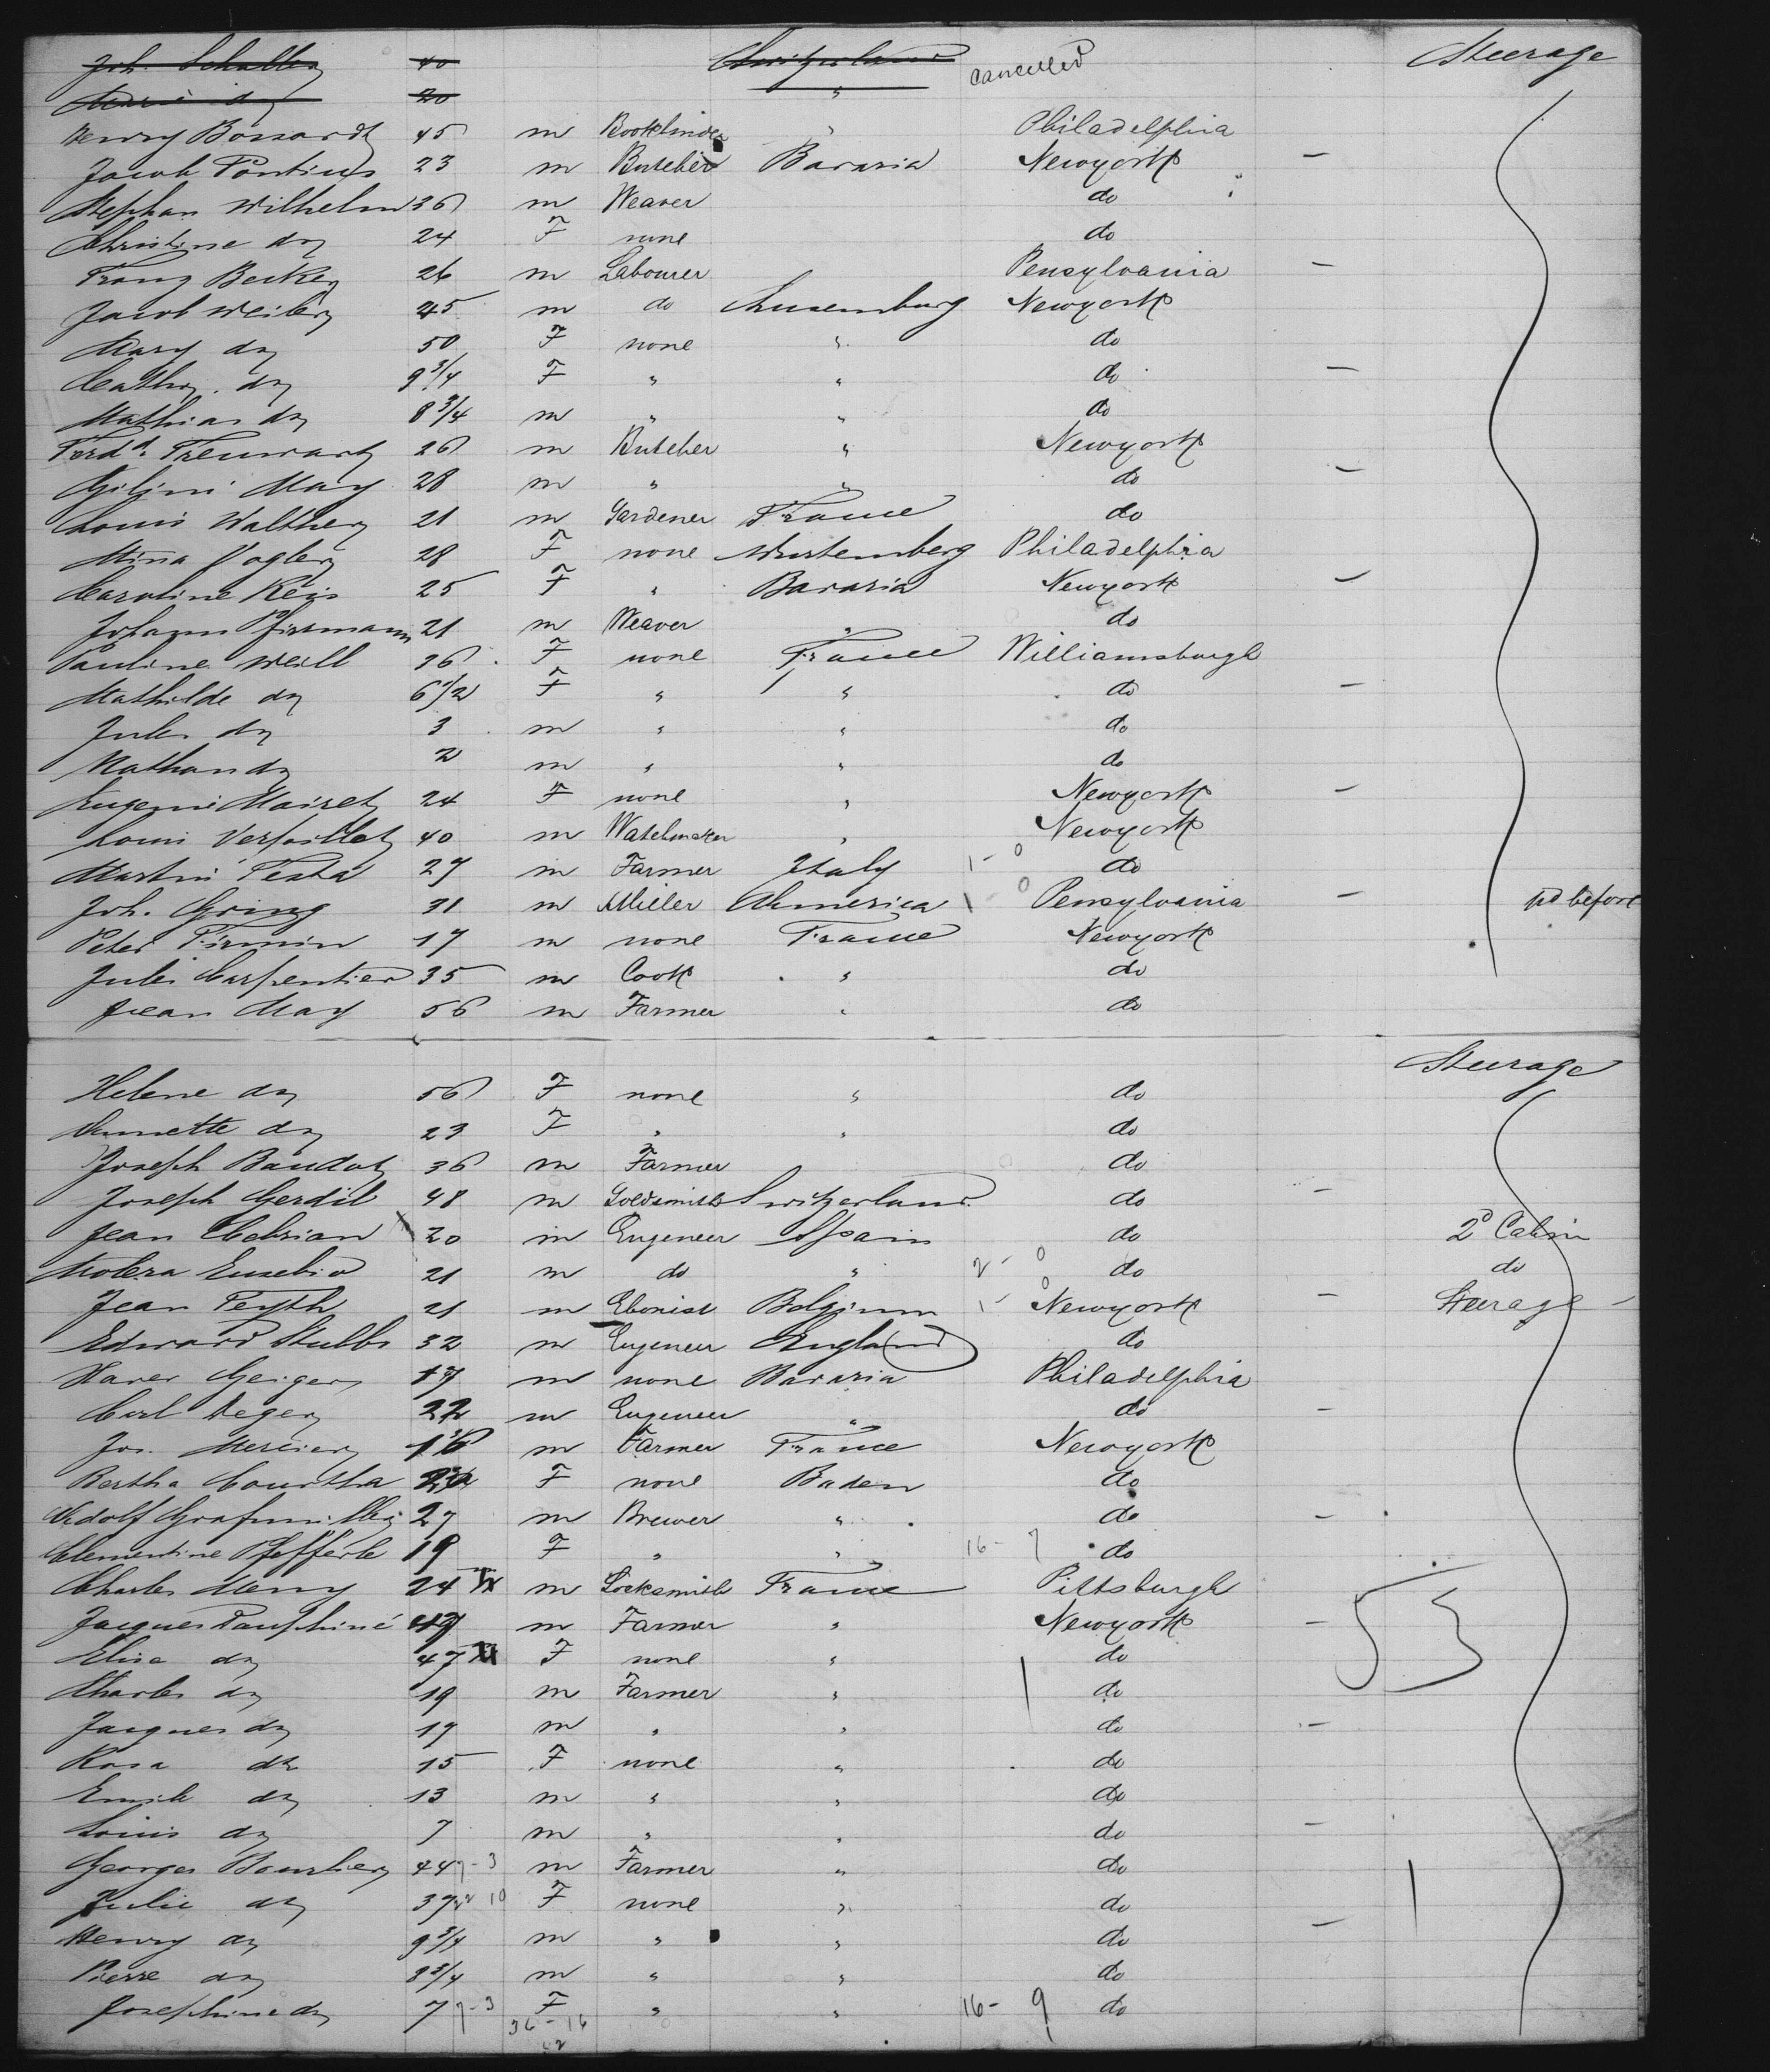 Joh. Schaller 40 Switzerland cancelled Steerage
Marie do 20 "
Henry Bossardt 45 m Bookbinder " Philadelphia
Jacob Pontius 23 m Butcher Bavaria Newyork —
Stephan Wilhelm 36 m Weaver do
Christine do 24 F none do
Franz Becker 26 m Labourer Pensylvania —
Jacob Weiler 45 m do Luxemburg Newyork
Mary do 50 F none " do
Cathr. do 9 3/4 F " " do —
Mathias do 8 3/4 m " " do
Ferdd. 26 m Butcher " Newyork
May 28 m " " do —
Louis Walther 21 m Gardener France do
Minna Vogler 28 F none Wurtemberg Philadelphia
Caroline Reis 25 F " Bavaria Newyork —
Johann Pfirmann 21 m Weaver " do
Pauline Weill 26 F none France Williamsburgh
Mathilde do 6 1/2 F " " do —
Jules do 3 m " " do
Nathan do 2 m " " do
Eugenie Mairet 24 F none " Newyork —
Louis 40 m Watchmaker " Newyork
Martin Testa 27 m Farmer Italy 1 - 0 do
Joh. Gring 31 m Miller America \ 0 Pensylvania — pd before
Peter Firmin 17 m none France Newyork
Jules Carpentier 35 m Cook " do
Jean May 56 m Farmer " do
Steerage
Helene do 56 F none " do
Annette do 23 F " " do
Joseph Baudot 36 m Farmer do
Joseph Gerdil 48 m Goldsmith Switzerland do —
Jean Cebrian 20 m Engeneer Spain do 2d Cabin
Molera Eusebio 21 m do " 2 - 0 do do
Jean 21 m Ebonist Belgium 1 - 0 Newyork — Steerage
Edward Stubbs 32 m Engeneer England do
Xaver Geiger 17 m none Bavaria Philadelphia
Carl Jeger 22 m Engeneer " do —
Jos. Mercier 16 m Farmer France Newyork
Bertha Courtha F none Baden do
Adolf Grafmuller 27 m Brewer " do —
Clementine Pfefferle 19 F " " 16 - 7 do
Charles Meny 24 m Locksmith France Pittsburgh
Jacques Dauphiné 49 m Farmer " Newyork — 53
Elisa do 47 F none " do
Charles do 19 m Farmer " do
Jacques do 17 m " " do —
Rosa do 15 F none " do
Emile do 13 m " " do
Louis do 7 m " " do —
Georges 44 7 - 3 m Farmer " do
Julie do 37 10 F none " do
Henry do 9 3/4 m " " do —
Pierre do 8 3/4 m " " do
Josephine do 7 7 - 3 F " " 16 - 9 do
36 - 16